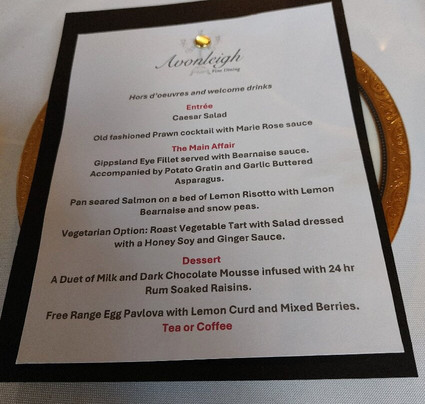 Avonleigh
Fine Dining
Hors d'oeuvres and welcome drinks
Entrée
Caesar Salad
Old fashioned Prawn cocktail with Marie Rose sauce
The Main Affair
Gippsland Eye Fillet served with Bearnaise sauce.
Accompanied by Potato Gratin and Garlic Buttered
Asparagus.
Pan seared Salmon on a bed of Lemon Risotto with Lemon
Bearnaise and snow peas.
Vegetarian Option: Roast Vegetable Tart with Salad dressed
with a Honey Soy and Ginger Sauce.
Dessert
A Duet of Milk and Dark Chocolate Mousse infused with 24 hr
Rum Soaked Raisins.
Free Range Egg Pavlova with Lemon Curd and Mixed Berries.
Tea or Coffee